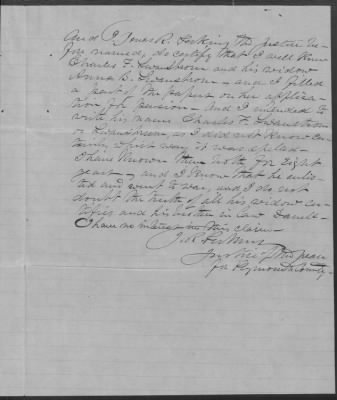 And I, Jonas R. Perkins the Justice be-
fore named, do certify that I well knew
Charles F. Swanstrom and his widow
Anna B. Swanstrom - and I filled
a part of the papers on her applica-
tion for pension - and I intended to
write his name Charles F. Swanstrom
or Swanstrum, as I did not know cer-
tainly which way it was spelled -
I have known them both for eight
years - and I know that he enlis-
ted and went to war, and I do not
doubt the truth of all his widow cer-
tifies and his brother in law
I have no interest in this claim -
J. R. Perkins
Justice of the peace
for Plymouth County -